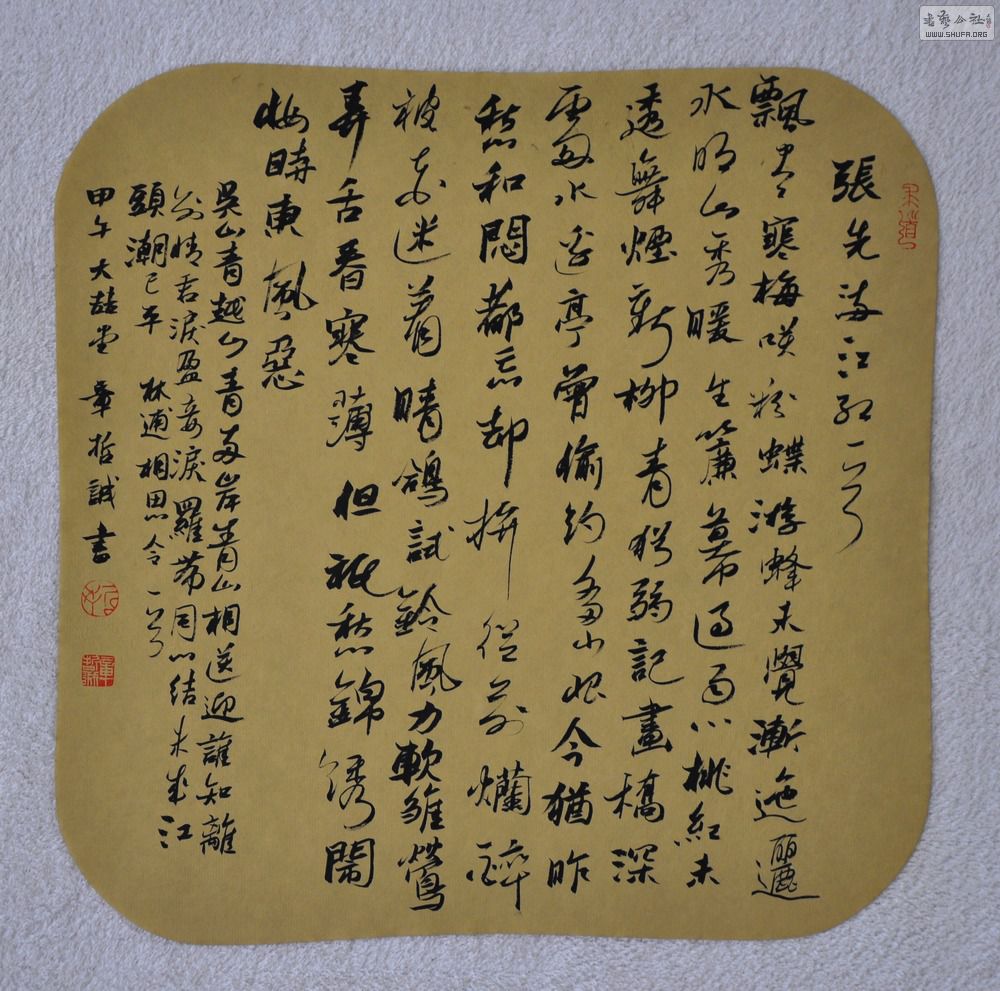 書藝公社
WWW.SHUFA.ORG
張先滿江紅一首
飄盡寒梅笑粉蝶游蜂未覺漸迤邐
水明山秀暖生簾幕過雨小桃紅未
透舞煙新柳青猶弱記畫橋深
處水邊亭曾偷約多少恨今猶昨
愁和悶都忘卻拚從前爛醉
被花迷著晴鴿試鈴風力軟雛鶯
弄舌春寒薄但祇愁錦繡鬧
妝時東風惡
吳山青越山青兩岸青山相送迎誰知離
別情君淚盈妾淚羅帶同心結未成江
頭潮已平 林逋相思令一首
甲午大喆堂章哲誠書